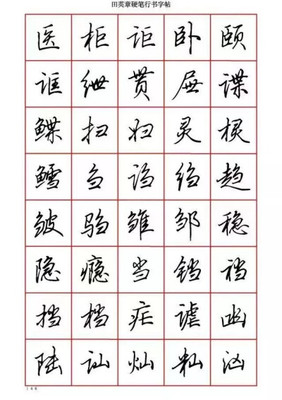 田英章硬笔行书字帖
医柜讵卧颐
诓绁贳屉谍
鲽扫妇灵棂
鳕刍诌绉趋
皱驺雏邹稳
隐瘾当铛裆
挡档症谑幽
陆讪灿籼汹